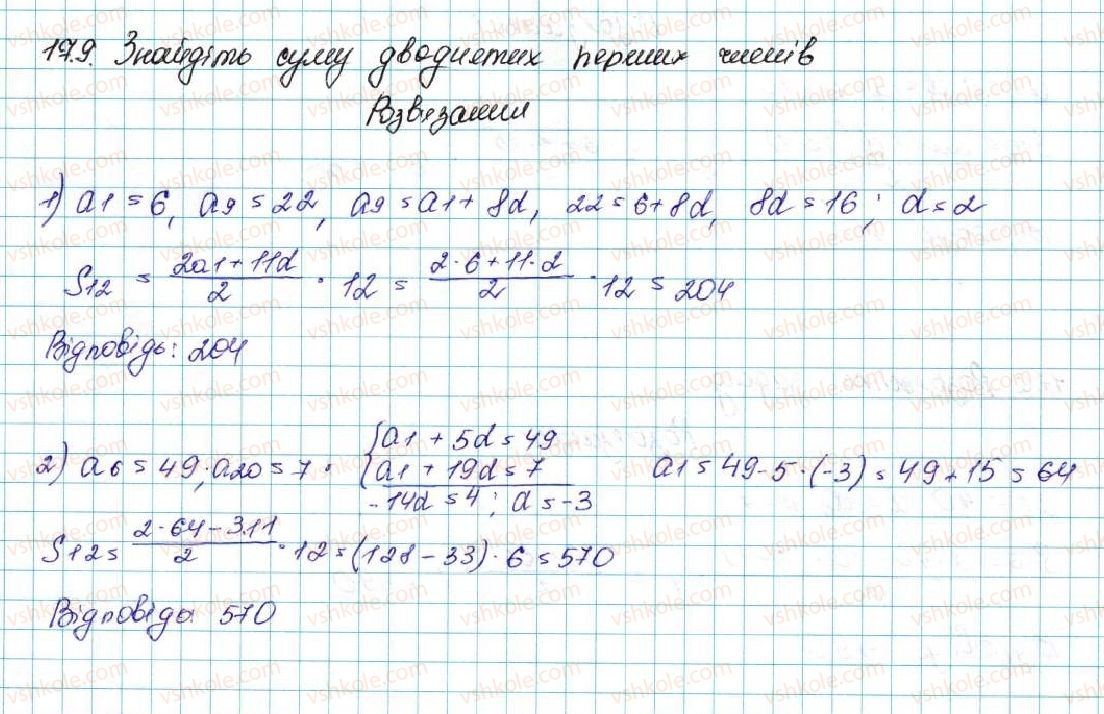 17.9. Знайдіть суму дводцятих перших членів
Розв'язання
1) a1 = 6, a9 = 22, a9 = a1 + 8d, 22 = 6 + 8d, 8d = 16; d = 2
S12 = (2a1 + 11d)/2 · 12 = (2·6 + 11·2)/2 · 12 = 204
Відповідь: 204
2) a6 = 49; a20 = 7. { a1 + 5d = 49
a1 + 19d = 7
a1 = 49 - 5·(-3) = 49 + 15 = 64
-14d = 4; d = -3
S12 = (2·64 - 3.11)/2 · 12 = (128 - 33) · 6 = 570
Відповідь 570